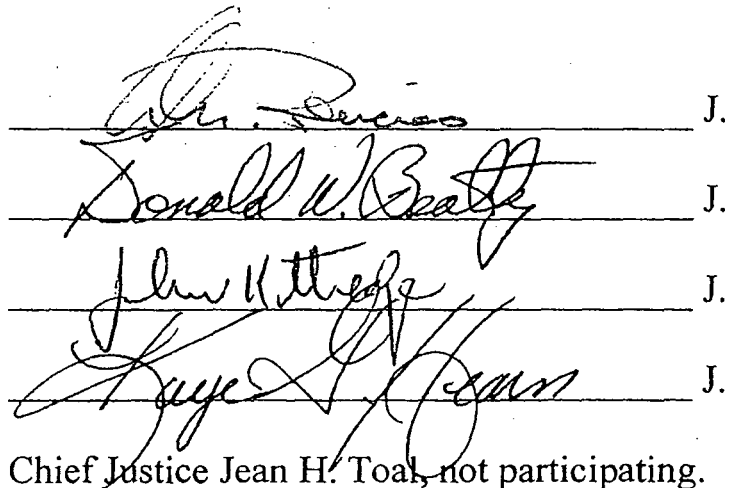 J.
Donald W. Beatty J.
John Kittredge J.
Kaye G. Hearn J.
Chief Justice Jean H. Toal, not participating.